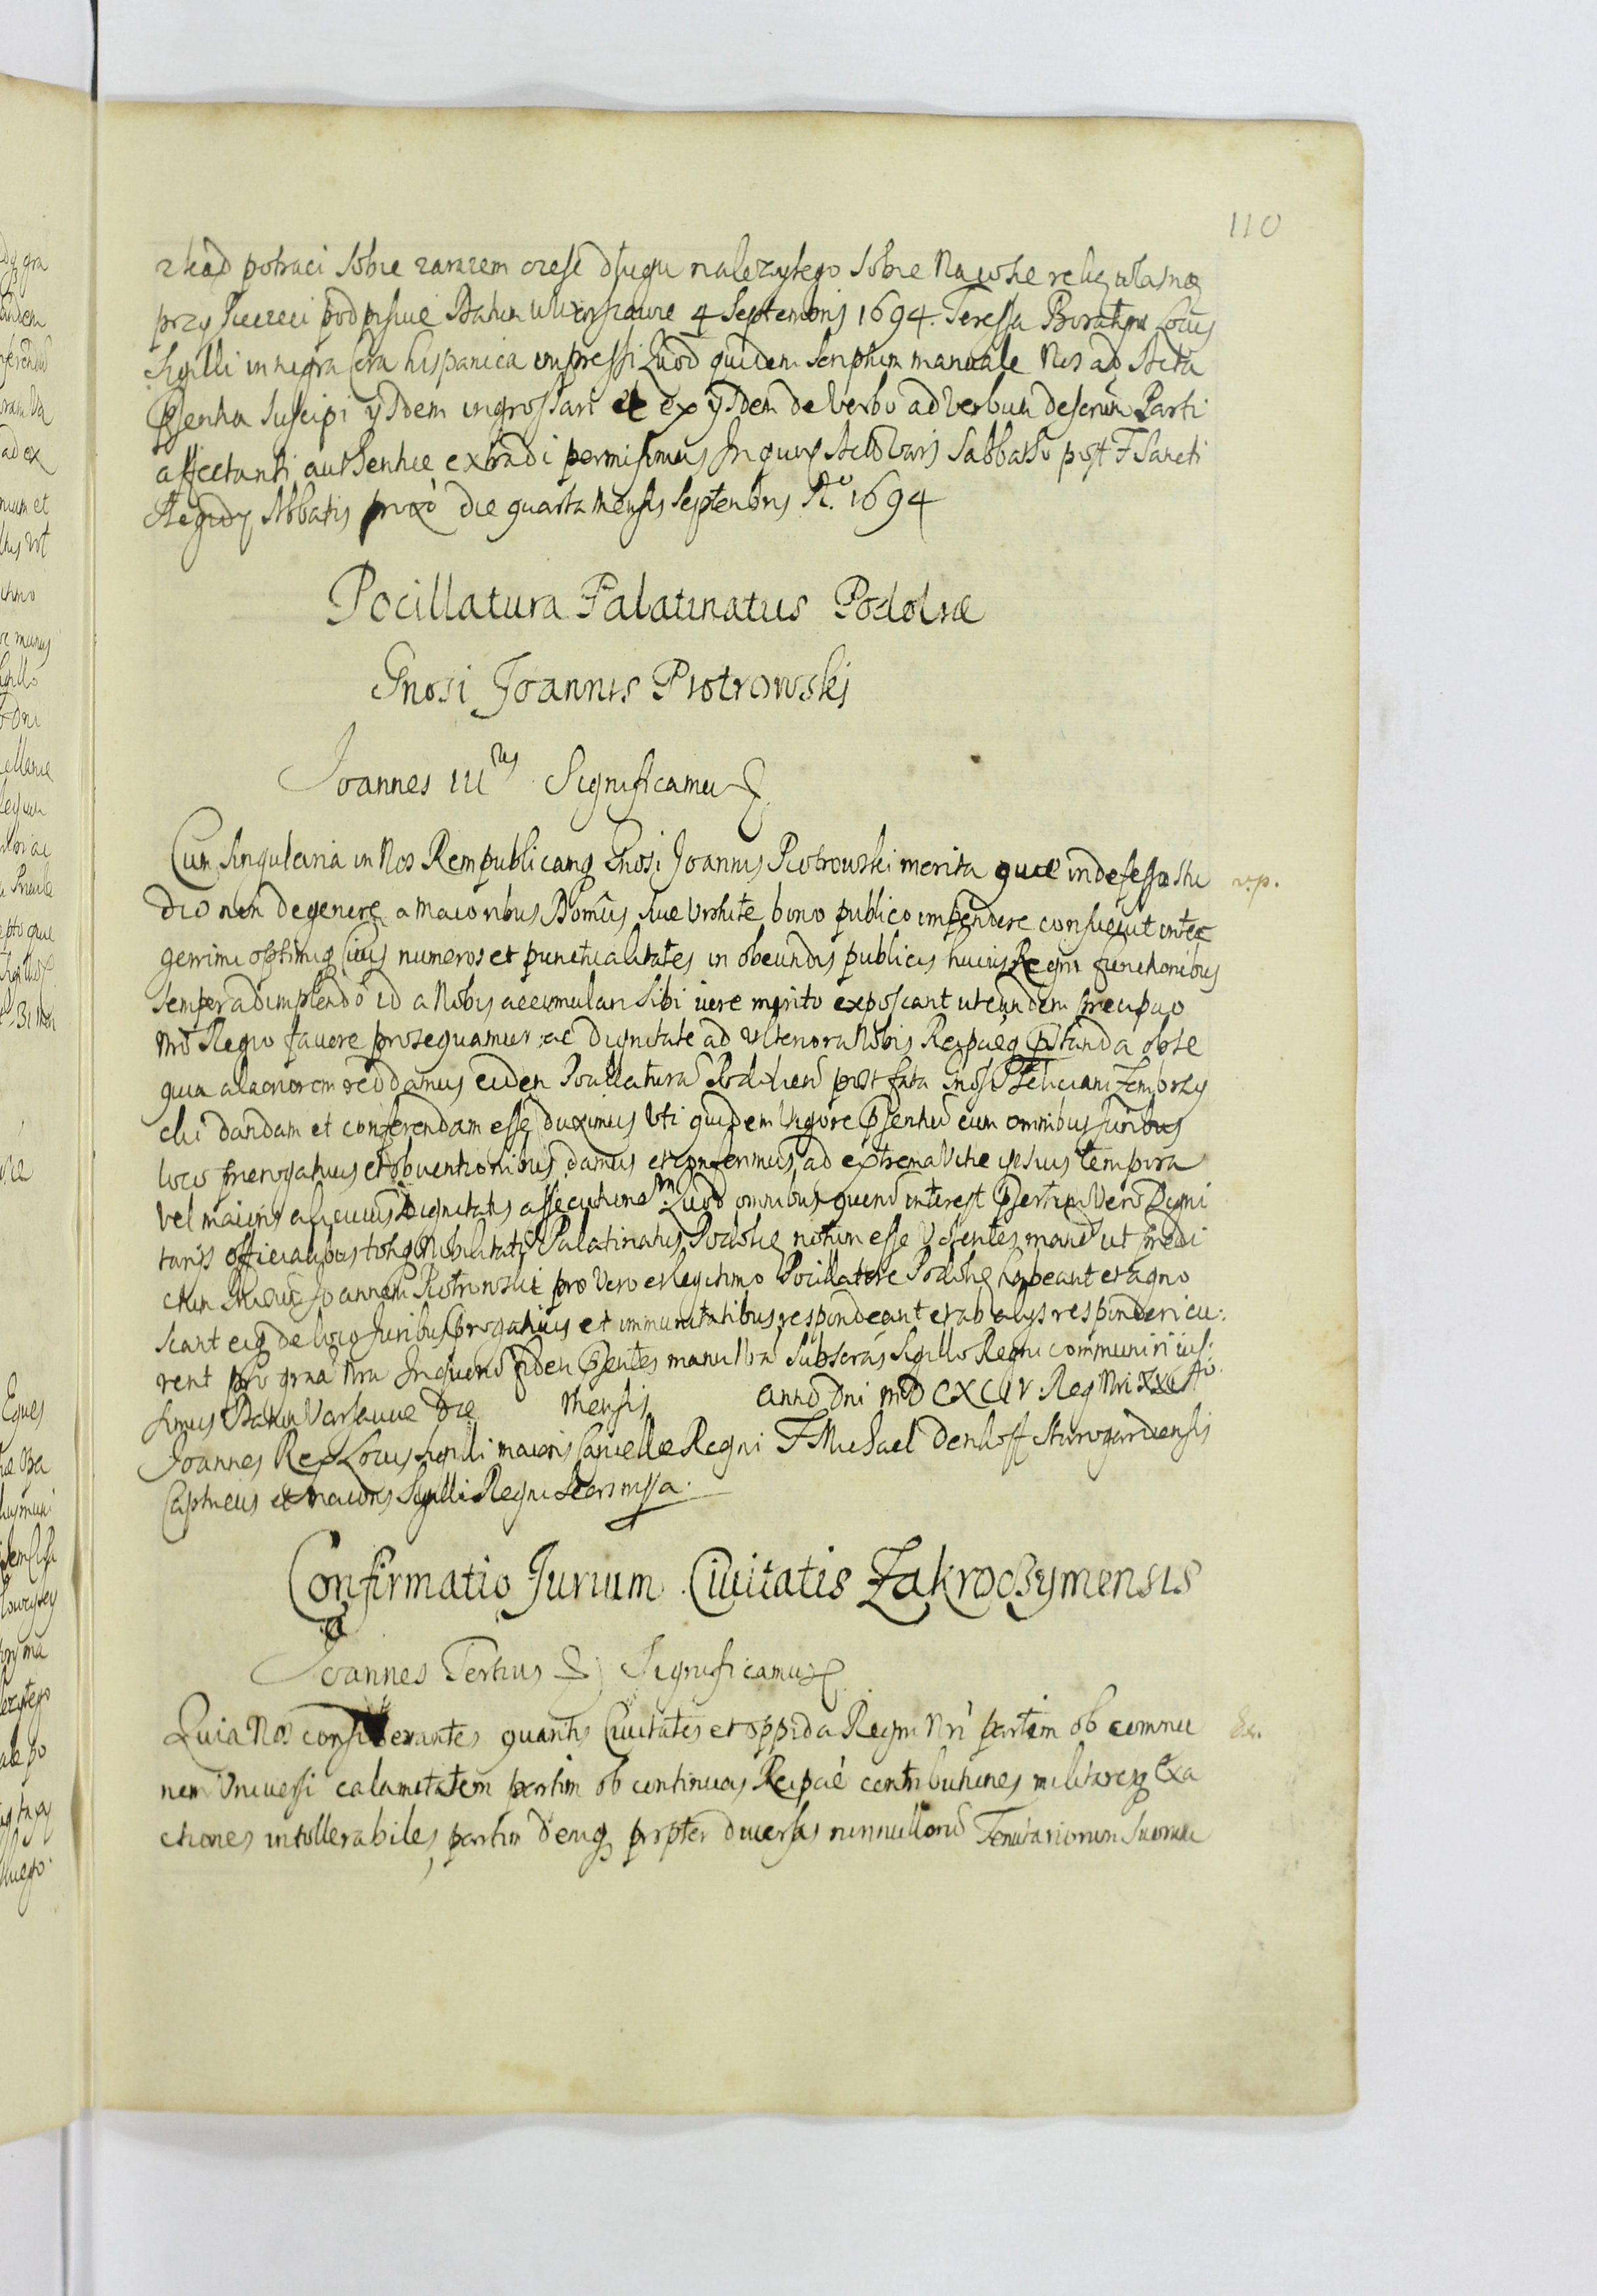 110
zkąd potraci sobie zarazem czesc długu nalezytego sobie Na co sie ręką własną
przy Pieczeci podpisuie Datum w Warszawie 4 Septembris 1694. Teressa Boratyni Locus
Sigilli in nigra Cera hispanica impressi Quod quidem scriptum manuale Nos ad Acta
pṅsentia suscipi ijsdem ingrossari et ex ijsdem de verbo ad verbum descrîm Parti
affectanti authentice extradi permisimus In quor̃ Act Vars Sabbatho post F Sancti
Aegidij Abbatis prox̃o die quarta Mensis Septembris A.o 1694
Pocillatura Palatinatus Podoliæ
Gnosi Joannis Piotrowski
Joannes IIIus Significamus &
Cum singularia in Nos Rempublicamq Gnosi Joannis Piotrowski merita quæ indefesso stu
v.p.
dio non degenere a maioribus Domûs suæ virtute bono publico impendere consuevit inte
gerrimi optimiq Civis numeros et punctualitates in obeundis publicis huius Regni functionibus
semper adimplendo id a Nobis accumulari sibi iure merito exposcant ut eundem præcipuo
nro Regio favore prosequamur ac dignitate ad ulteriora Nobis Reipaeq pstanda obse
quia alacriorem reddamus eidem Pocillaturã Podoliens post fata Gnosi Feliciani Zembrzy
cki dandam et conferendam esse duximus Uti quidem vigore psentiũ cum omnibus Juribus
loco prærogativis et obventionibus damus et conferimus ad extrema vitæ ipsius tempora
vel maioris alicuius Dignitatis assecutionem Quod omnibus quorũ interest psertim Vero Digni
tarijs officialibus totiq Nobilitati Palatinatus Podoliæ notum esse volentes mand ut prædi
ctum Gnosũ Joannem Piotrowski pro vero et legitimo Pocillatore Podoliæ habeant et agno
scant eiq de loco Juribus prærogativis et immunitatibus respondeant et ab alys responderi cu:
rent pro graã nra In quorũ fidem psentes manu Nra Subscras Sigillo Regni communiri ius:
simus Datum Varsaviæ Die Mensis Anno Dni MDCXCIV Reg Nri XXI Ao
Joannes Rex Locus Sigilli maioris Cancellæ Regni F Michael Denhoff Starogardiensis
Capitneus et maioris Sigilli Regni Secrs mppa.
Confirmatio Jurium Civitatis Zakroczymensis
Joannes Tertius & Significamus &
Quia Nos considerantes quantis Civitates et oppida Regni Nri partim ob commu
Ex.
nem Universi calamitatem partim ob continuas Reipaé contributiones militaresq Exa
ctiones intollerabiles, partim deniq propter diversas nonnullorũ Tenutariorum Suorum